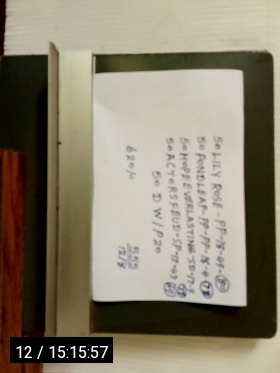 50 LILY ROSE - PP-18-49-
50 PONDLEAP-PP-PP-18-
50 HOPE EVERLASTING SD-17-5
50 ACTORS FEUD-SP-17-43
50 D W/P20
620/c
555
12/8
12 / 15:15:57